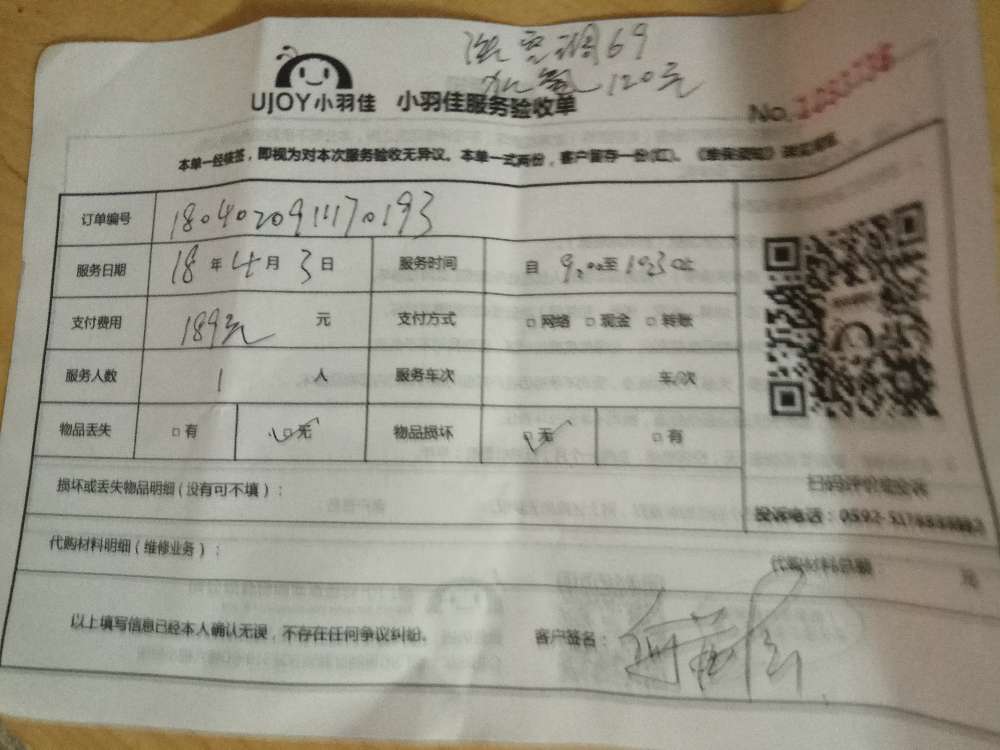 洗空调69
加氟120元
UJOY小羽佳 小羽佳服务验收单
No.
本单一经核签，即视为对本次服务验收无异议。本单一式两份，客户留存一份
订单编号 18040209111170193
服务日期 18年4月3日 服务时间 自9:00至10:30止
支付费用 189元 元 支付方式 □网络 □现金 □转账
服务人数 1 人 服务车次 车/次
物品丢失 □有 □无 物品损坏 □无 □有
损坏或丢失物品明细（没有可不填）：
扫码评价或投诉
投诉电话：0592-
代购材料明细（维修业务）： 代购材料总额 元
以上填写信息已经本人确认无误，不存在任何争议纠纷。 客户签名：